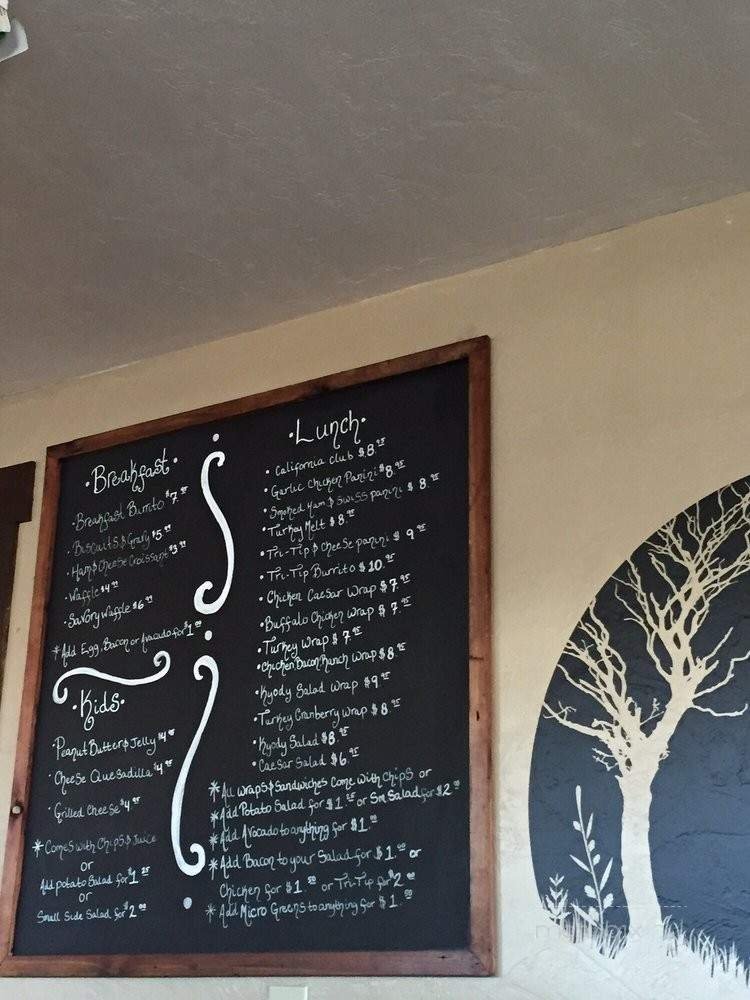 ·Breakfast·
·Breakfast Burrito $7.
·Biscuits & Gravy $5.
·Ham & Cheese Croissant $3
·Waffle $4
·Savory Waffle $6
*Add Egg, Bacon or Avocado for $1.
·Kids·
·Peanut Butter & Jelly $4
·Cheese Quesadilla $4
·Grilled Cheese $4.
*Comes with Chips & Juice
or
Add potato Salad for $1.
or
Small Side Salad for $2
·Lunch·
·California Club $8.
·Garlic Chicken Panini $8.
·Smoked Ham & Swiss panini $8.
·Turkey Melt $8.
·Tri-Tip & Cheese panini $9
·Tri-Tip Burrito $10.
·Chicken Caesar Wrap $7.
·Buffalo Chicken Wrap $7.
·Turkey Wrap $7.
·Chicken Bacon Ranch Wrap $8.
·Kyody Salad Wrap $9.
·Turkey Cranberry Wrap $8.
·Kyody Salad $8.
·Caesar Salad $6.
*All Wraps & Sandwiches Come with Chips or
*Add Potato Salad for $1. or Sm Salad for $2
*Add Avocado to anything for $1.
*Add Bacon to your Salad for $1. or
Chicken for $1. or Tri-Tip for $2
*Add Micro Greens to anything for $1.